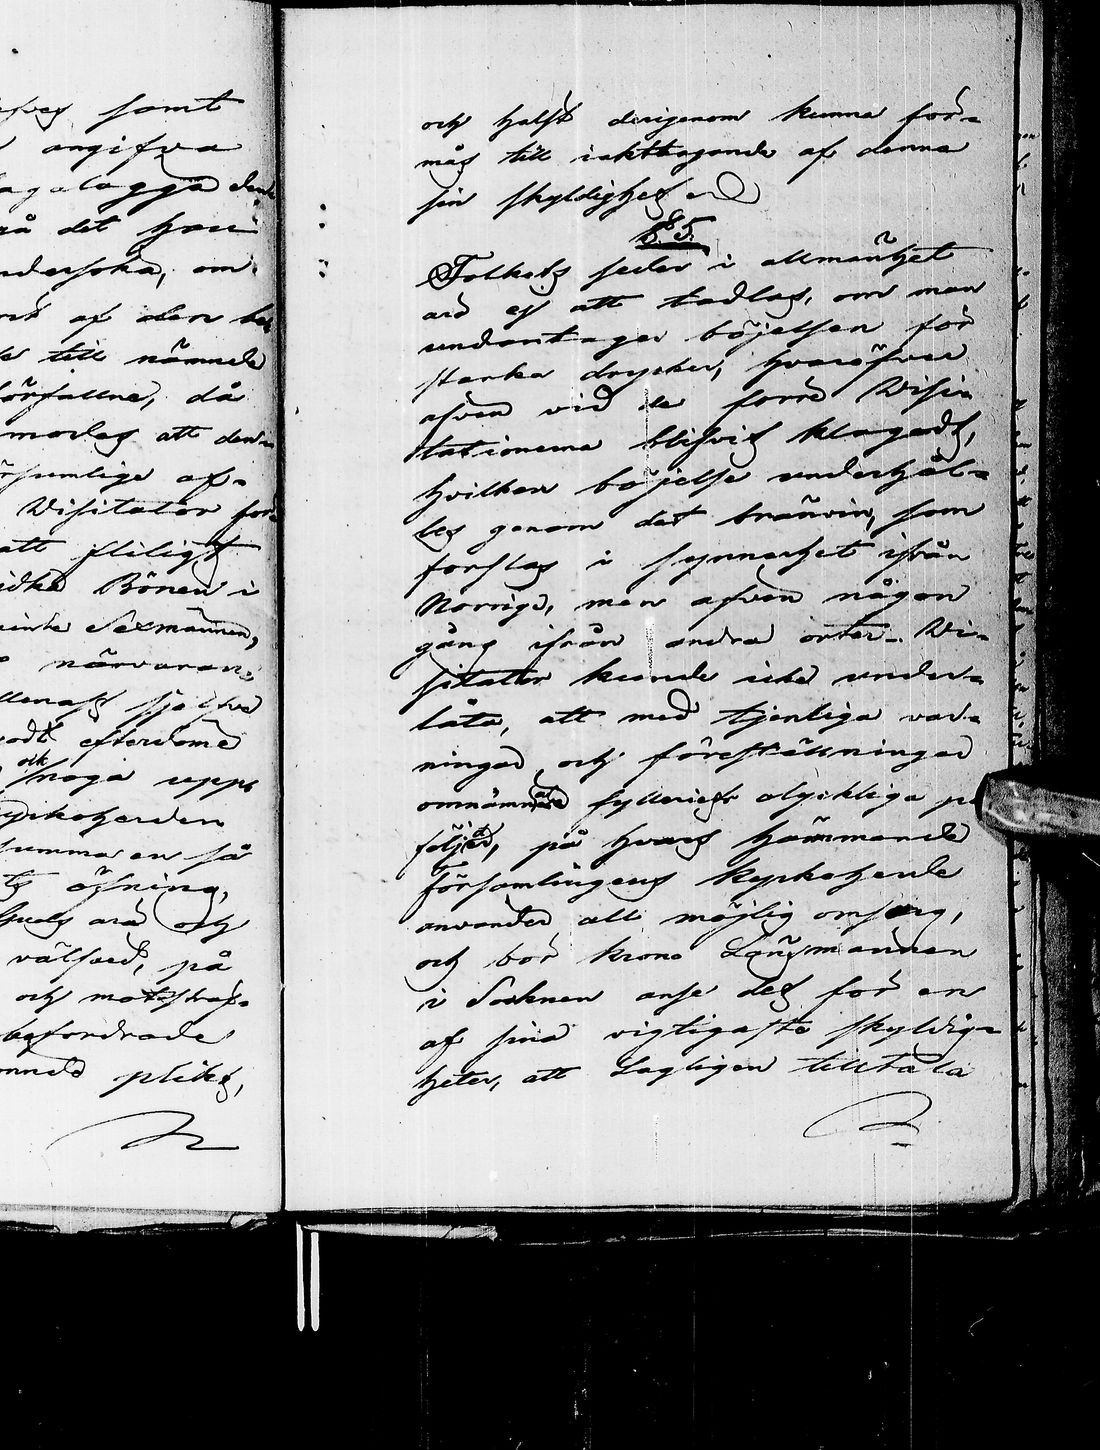 samt
angifva
det han
undersöka, om
af den be-
till nämnde
förfallne, då
att den-
försumlige af-
Visitator för-
att fliligt
idka Bönen i
Sexmännen,
närvaran-
sjelfve
godt efterdöme
och noga upp-
kyrkoherden
så
öfning,
ära och
välfärd, på
och
befordrade
plikt,
och helst derigenom kunna för-
mås till iakttagande af denna
sin skyldighet
§ 5.
Folkets seder i allmänhet
äro ej att tadlas, om man
undantager böjelsen för
starka drycker, hvaröfver
äfven vid de förra Visi-
tationerna blifvit klagadt,
hvilken böjelse underhål-
les genom det bränvin, som
forslas i synnerhet ifrån
Norrige, men äfven någon
gång ifrån andra orter. Vi-
sitator kunde icke under-
låta, att med tjenliga var-
ningar och föreställningar
omnämna fylleriets olyckliga på-
följder, på hvars hämmande
Församlingens Kyrkoherde
använder all möjlig omsorg,
och bör Krono Länsmannen
i Socknen anse det för en
af sina vigtigaste skyldig-
heter, att Lagligen tilltala